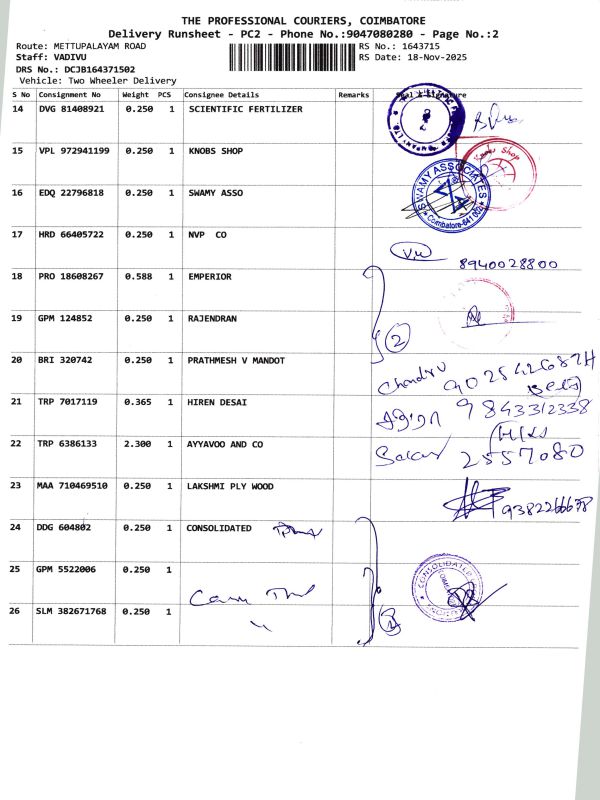 THE PROFESSIONAL COURIERS, COIMBATORE
Delivery Runsheet - PC2 - Phone No.:9047080280 - Page No.:2
Route: METTUPALAYAM ROAD
RS No.: 1643715
Staff: VADIVU
RS Date: 18-Nov-2025
DRS No.: DCJB164371502
Vehicle: Two Wheeler Delivery
S No Consignment No Weight PCS Consignee Details Remarks Seal & Signature
14 DVG 81408921 0.250 1 SCIENTIFIC FERTILIZER
15 VPL 972941199 0.250 1 KNOBS SHOP
Knobs Shop
16 EDQ 22796818 0.250 1 SWAMY ASSO
SWAMY ASSOCIATES
Coimbatore-641 002
17 HRD 66405722 0.250 1 NVP CO
8940028800
18 PRO 18608267 0.588 1 EMPERIOR
19 GPM 124852 0.250 1 RAJENDRAN
2
20 BRI 320742 0.250 1 PRATHMESH V MANDOT
21 TRP 7017119 0.365 1 HIREN DESAI
9843312338
22 TRP 6386133 2.300 1 AYYAVOO AND CO
2557080
23 MAA 710469510 0.250 1 LAKSHMI PLY WOOD
9382266678
24 DDG 604802 0.250 1 CONSOLIDATED
25 GPM 5522006 0.250 1
CONSOLIDATED
26 SLM 382671768 0.250 1